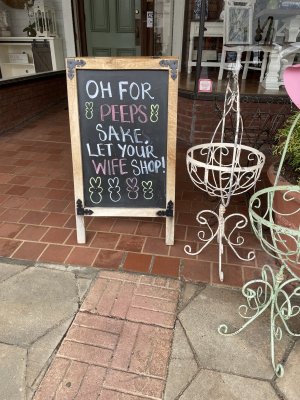 OH FOR
PEEPS
SAKE,
LET YOUR
WIFE SHOP!